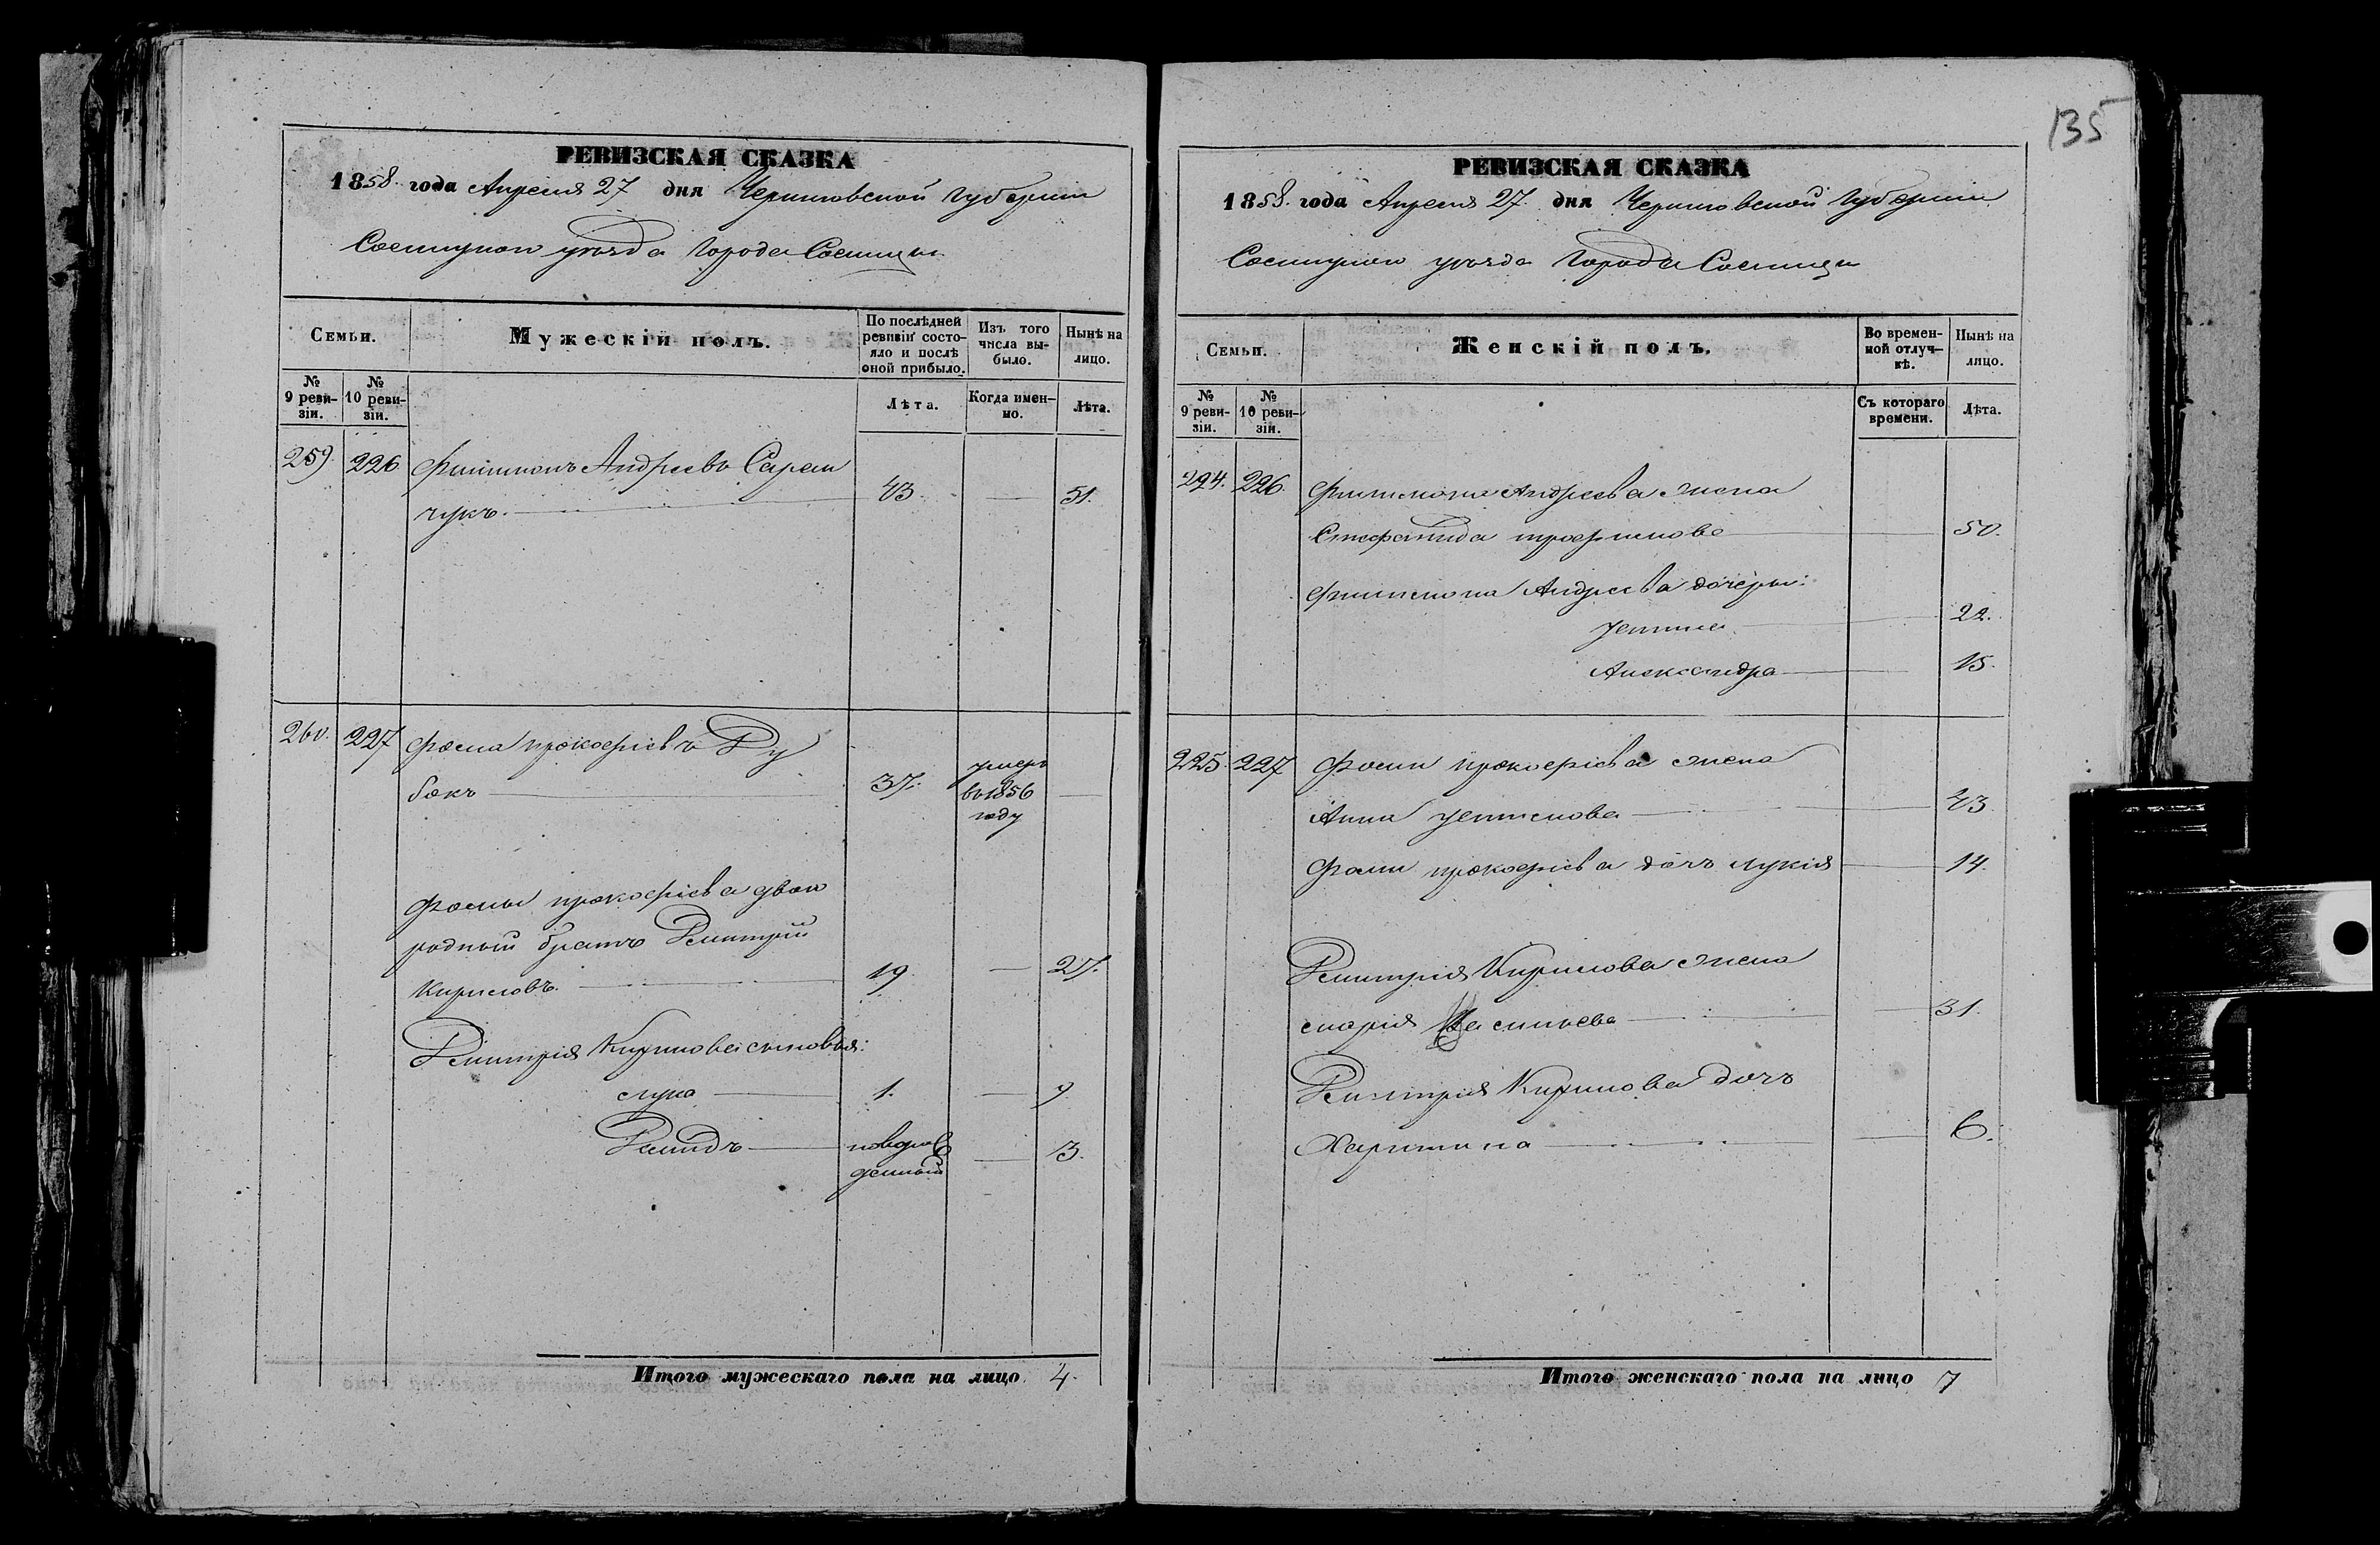 135
РЕВИЗСКАЯ СКАЗКА
1858. года Апреля 27 дня Черниговской Губернiи
Сосницкого уезда Города Сосницы
Семьи.
Мужескій полъ.
По послѣдней ревизіи состояло и послѣ оной прибыло.
Изъ того числа выбыло.
Нынѣ на лицо.
№ 9 ревизіи.
№ 10 ревизіи.
Лѣта.
Когда именно.
Лѣта.
259. 226 Филимонъ Андреевъ
чукъ. 43. 51.
260. 227 Фома Прокофіевъ Ду
бокъ 37. умеръ в 1856 году
Фомы Прокофіева двою
родный братъ Дмитрій
Кириловъ. 19. 27.
Дмитрія Кирилова сыновья:
Лука 1. 9
новорожденный 3.
Итого мужескаго пола на лицо 4.
РЕВИЗСКАЯ СКАЗКА
1858. года Апреля 27. дня Черниговской Губернiи
Сосницкого уезда Города Сосницы
Семьи.
Женскій полъ.
Во временной отлучкѣ.
Нынѣ на лицо.
№ 9 ревизіи.
№ 10 ревизіи.
Съ котораго времени.
Лѣта.
224. 226. Филимона Андреева жена
Стефанида Трофимова 50.
Филимона Андреева дочери:
Устина 22.
Александра 15.
225. 227 Фомы Прокофіева жена
Анна Устимова 43.
Фомы Прокофіева дочь Лукія 14.
Дмитрія Кирилова жена
Марія Васильева 31.
Дмитрія Кирилова дочь
Харитина 6.
Итого женскаго пола на лицо 7